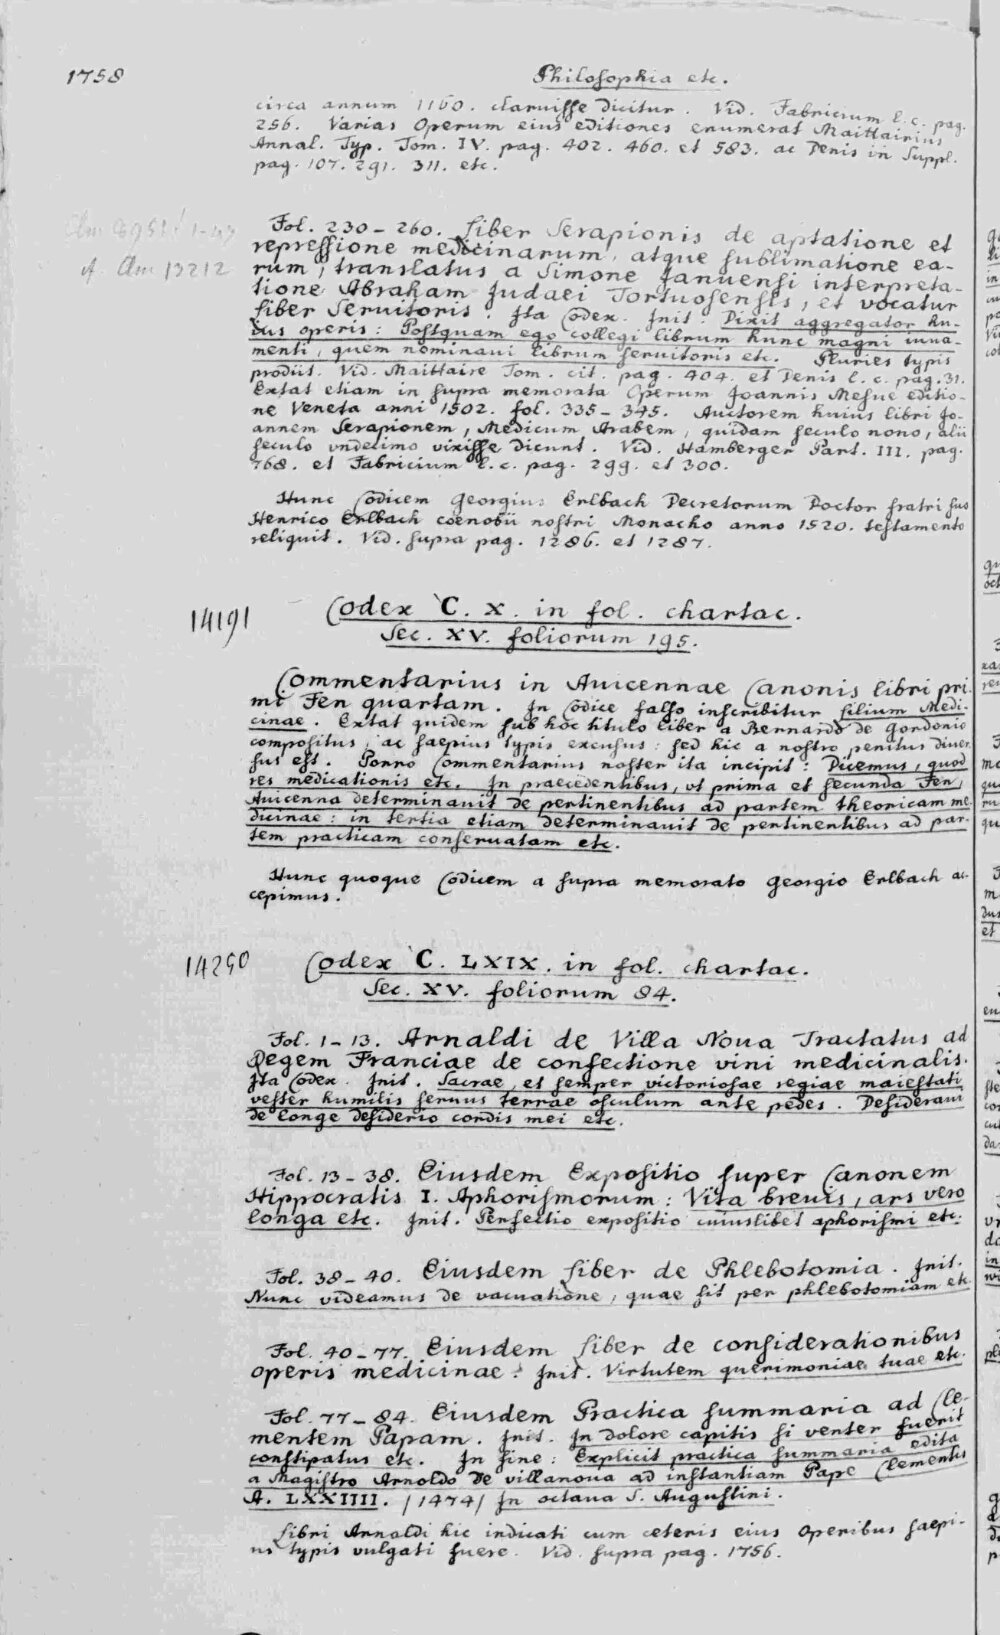 1758
Philosophia etc.
circa annum 1160. claruisse dicitur. Vid. Fabricium l. c. pag.
256. Varias Operum eius editiones enumerat Maittairius
Annal. Typ. Tom. IV. pag. 402. 460. et 583. ac Denis in Suppl.
pag. 107. 291. 311. etc.
Fol. 230-260. Liber Serapionis de aptatione et
repressione medicinarum, atque sublimatione ea-
rum, translatus a Simone Januensi interpreta-
cf. Clm 13212
tione Abraham Judaei Tortuosensis, et vocatur
Liber Seruitoris. Ita Codex. Init. Dixit aggregator hu-
ius operis: Postquam ego collegi librum hunc magni iuua-
menti, quem nominaui librum seruitoris etc. Pluries typis
prodiit. Vid. Maittaire Tom. cit. pag. 404. et Denis l. c. pag. 31.
Extat etiam in supra memorata Operum Joannis Mesue editio-
ne Veneta anni 1502. fol. 335-345. Auctorem huius libri Jo-
annem Serapionem, Medicum Arabem, quidam seculo nono, alii
seculo vndecimo vixisse dicunt. Vid. Hamberger Part. III. pag.
768. et Fabricium l. c. pag. 299. et 300.
Hunc Codicem Georgius Erlbach Decretorum Doctor fratri suo
Henrico Erlbach coenobii nostri Monacho anno 1520. testamento
reliquit. Vid. supra pag. 1286. et 1287.
14191
Codex C. X. in fol. chartac.
Sec. XV. foliorum 195.
Commentarius in Auicennae Canonis libri pri-
mi Fen quartam. In Codice falso inscribitur Lilium Medi-
cinae. Extat quidem sub hoc titulo liber a Bernardo de Gordonio
compositus, ac saepius typis excusus: sed hic a nostro penitus diuer-
sus est. Porro Commentarius noster ita incipit: Dicemus, quod
res medicationis etc. In praecedentibus, vt prima et secunda Fen,
Auicenna determinauit de pertinentibus ad partem theoricam me-
dicinae: in tertia etiam determinauit de pertinentibus ad par-
tem practicam conseruatam etc.
Hunc quoque Codicem a supra memorato Georgio Erlbach ac-
cepimus.
14290
Codex C. LXIX. in fol. chartac.
Sec. XV. foliorum 84.
Fol. 1-13. Arnaldi de Villa Noua Tractatus ad
Regem Franciae de confectione vini medicinalis.
Ita Codex. Init. Sacrae, et semper victoriosae regiae maiestati
vester humilis seruus terrae osculum ante pedes. Desideraui
de longe desiderio cordis mei etc.
Fol. 13-38. Eiusdem Expositio super Canonem
Hippocratis I. Aphorismorum: Vita breuis, ars vero
longa etc. Init. Perfectio expositio cuiuslibet aphorismi etc.
Fol. 38-40. Eiusdem Liber de Phlebotomia. Init.
Nunc videamus de vacuatione, quae fit per phlebotomiam etc.
Fol. 40-77. Eiusdem Liber de considerationibus
operis medicinae. Init. Virtutem querimoniae tuae etc.
Fol. 77-84. Eiusdem Practica summaria ad Cle-
mentem Papam. Init. In dolore capitis si venter fuerit
constipatus etc. In fine: Explicit practica summaria edita
a Magistro Arnoldo de villanoua ad instantiam Pape Clementis
A. LXXIIII. /1474/ In octaua S. Augustini.
Libri Arnaldi hic indicati cum ceteris eius Operibus saepi-
us typis vulgati fuere. Vid. supra pag. 1756.